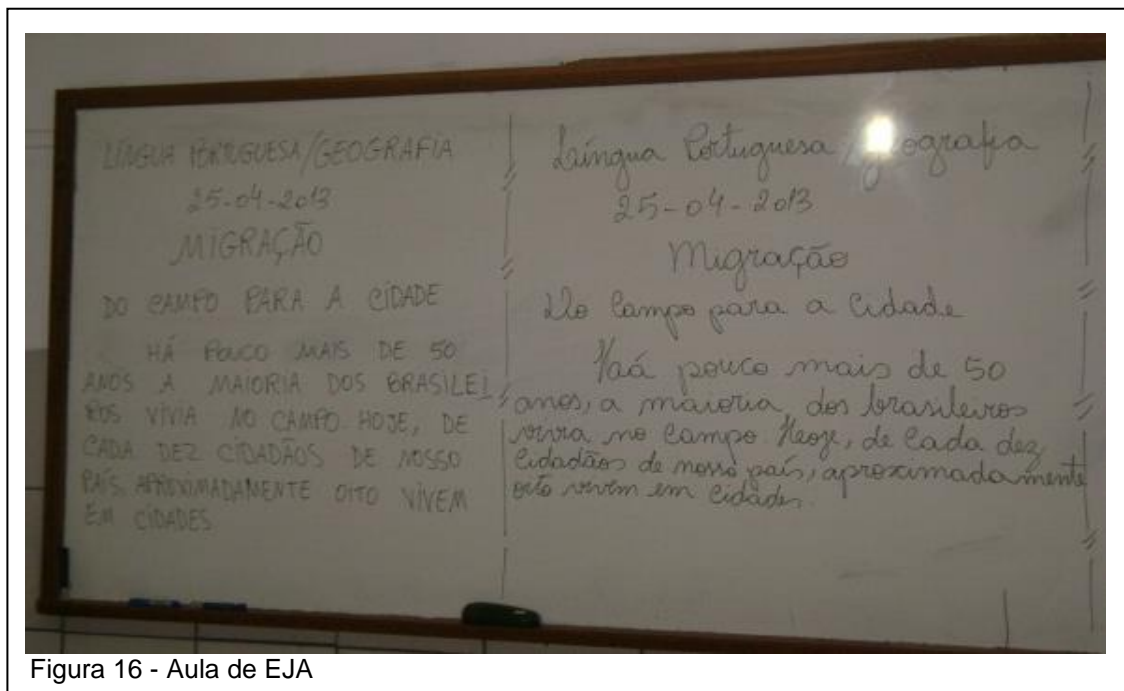 LÍNGUA PORTUGUESA/GEOGRAFIA
25-04-2013
MIGRAÇÃO
DO CAMPO PARA A CIDADE
HÁ POUCO MAIS DE 50
ANOS A MAIORIA DOS BRASILEI
ROS VIVIA NO CAMPO. HOJE, DE
CADA DEZ CIDADÃOS DE NOSSO
PAÍS, APROXIMADAMENTE OITO VIVEM
EM CIDADES
Língua Portuguesa/geografia
25-04-2013
Migração
Do Campo para a Cidade
Há pouco mais de 50
anos, a maioria dos brasileiros
vivia no campo. Hoje, de cada dez
cidadãos de nosso país, aproximadamente
oito vivem em cidades.
Figura 16 - Aula de EJA